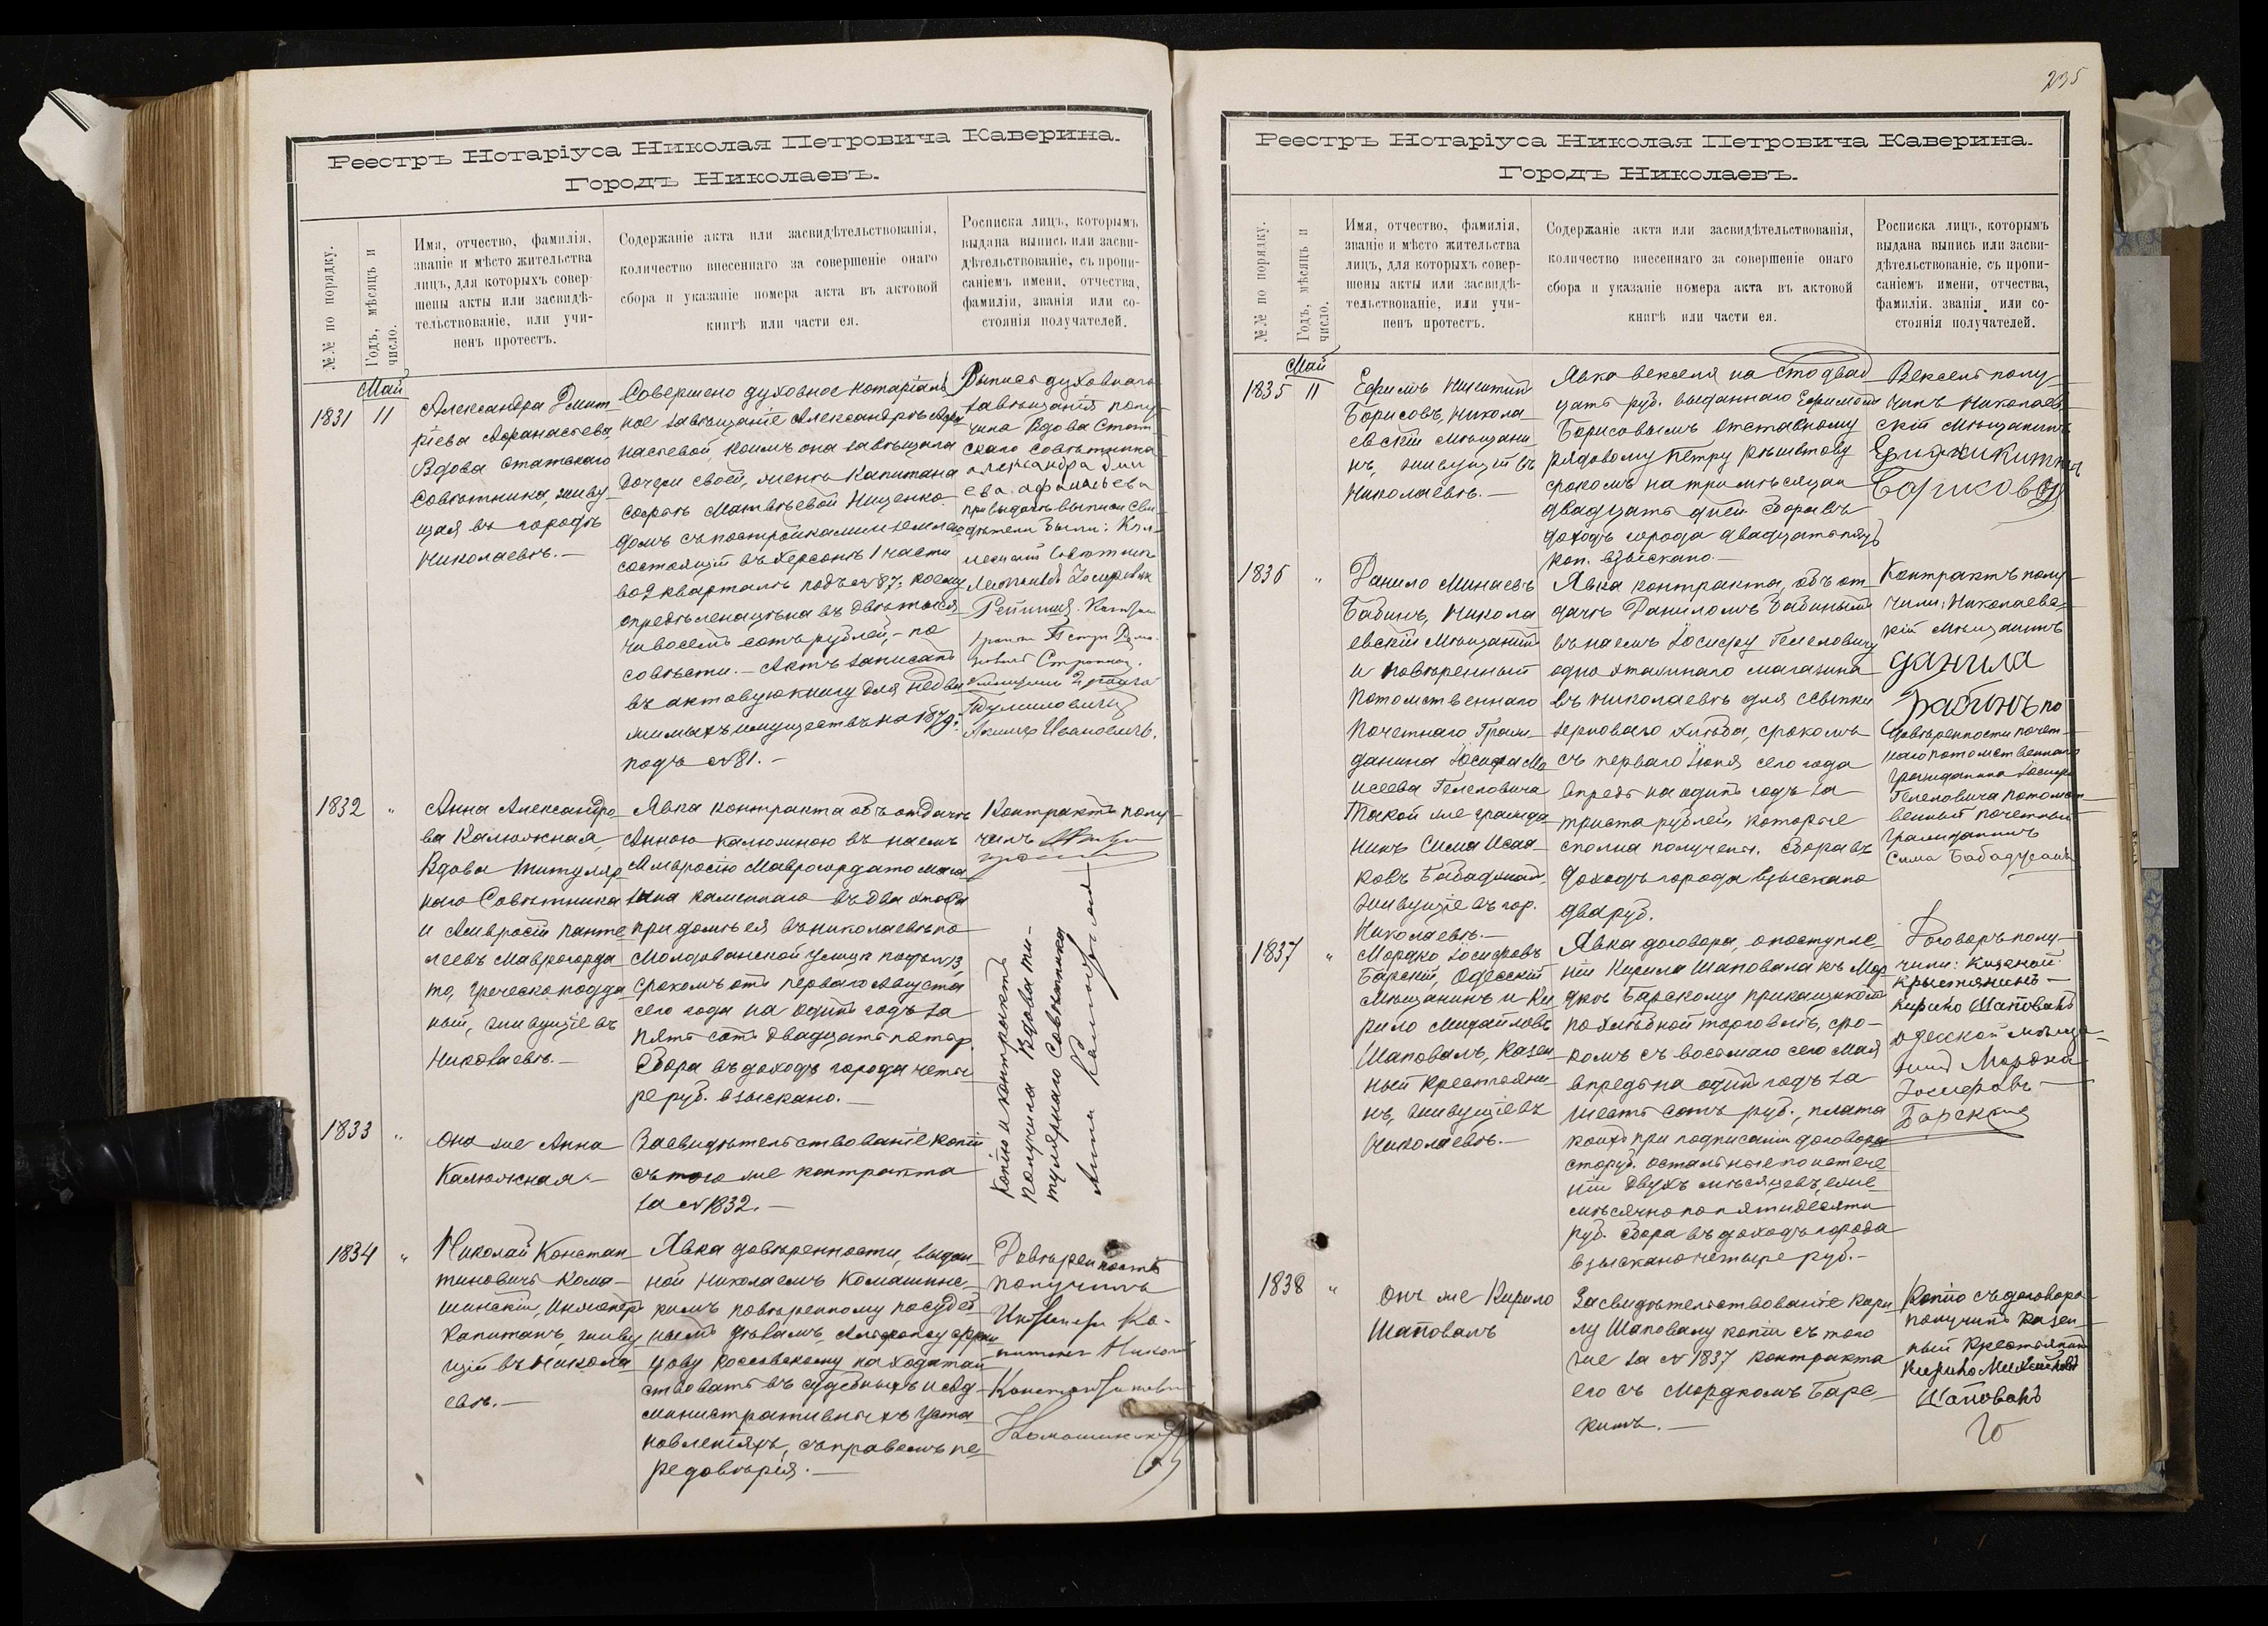 235
Реестръ Нотаріуса Николая Петровича Каверина.
Городъ Николаевъ.
№№ по порядку.
Годъ, мѣсяцъ и
число.
Имя, отчество, фамилія,
званіе и мѣсто жительства
лицъ, для которыхъ совер-
шены акты или засвидѣ-
тельствованіе, или учи-
ненъ протестъ.
Содержаніе акта или засвидѣтельствованія,
количество внесеннаго за совершеніе онаго
сбора и указаніе номера акта въ актовой
книгѣ или части ея.
Росписка лицъ, которымъ
выдана выпись или засви-
дѣтельствованіе, съ пропи-
саніемъ имени, отчества,
фамиліи, званія или со-
стоянія получателей.
Май
1831
11
Александра Дмит-
ріева Афанасьева,
Вдова Статскаго
Совѣтника, живу-
щая въ городѣ
Николаевѣ.—
Совершено духовное нотаріаль-
ное завѣщаніе Александрѣ Афа-
насьевой, коимъ она завѣщала
дочери своей, женѣ Капитана
Софьѣ Матвѣевой Ищенко
домъ съ постройками и землею
состоящій въ Херсонѣ 1 части
во 2 кварталѣ подъ № 87; коему
опредѣлена цѣна въ двѣ тыся-
чи восемь сотъ рублей,— по
совѣсти.— Актъ записанъ
въ актовую книгу для недви-
жимыхъ имуществъ на 1879 г.
подъ № 81.—
Выпись духовнаго
завѣщанія полу-
чила Вдова Стат
скаго Совѣтника
Александра Дми
ева Афанасьева
при выдачѣ выписи сви-
дѣтели были: Кол-
Акимъ Ивановичъ.
1832
"
Анна Александро-
ва Калюжная,
Вдова Титуляр-
наго Совѣтника
и Амвросій Панте-
леевъ Маврогорда-
то, греческоподда-
ный, живущіе въ
Николаевѣ.—
Явка контракта объ отдачѣ
Анною Калюжною въ наемъ
Амвросію Маврогордато мага-
зина каменнаго въ два этажа
при домѣ ея въ Николаевѣ по
Молдованской улицѣ подъ № 13,
срокомъ отъ перваго Августа
сего года на одинъ годъ за
пять сотъ двадцать пять р.
Сбора въ доходъ города четы-
ре руб. взыскано.—
Контрактъ полу-
чилъ
Копію и контрактъ
получила Вдова ти-
тулярнаго Совѣтника
Анна Калюжная
1833
"
Она же Анна
Калюжная.—
Засвидѣтельствованіе копіи
съ того же контракта
за № 1832.—
1834
"
Николай Констан-
тиновичъ Кома-
шинскій, Инженеръ
Капитанъ, живу-
щій въ Никола-
евѣ.—
Явка довѣренности, выдан-
ной Николаемъ Комашинс-
кимъ повѣренному по судеб-
нымъ дѣламъ, Альфонсу Фран-
цову Коссовскому на ходатай-
ствовать въ судебныхъ и ад-
министративныхъ уста-
новленіяхъ, съ правомъ пе-
редовѣрія.—
Довѣренность
получилъ
Инженеръ Ка-
питанъ Николай
Константинович
Комашинскій
Реестръ Нотаріуса Николая Петровича Каверина.
Городъ Николаевъ.
№№ по порядку.
Годъ, мѣсяцъ и
число.
Имя, отчество, фамилія,
званіе и мѣсто жительства
лицъ, для которыхъ совер-
шены акты или засвидѣ-
тельствованіе, или учи-
ненъ протестъ.
Содержаніе акта или засвидѣтельствованія,
количество внесеннаго за совершеніе онаго
сбора и указаніе номера акта въ актовой
книгѣ или части ея.
Росписка лицъ, которымъ
выдана выпись или засви-
дѣтельствованіе, съ пропи-
саніемъ имени, отчества,
фамиліи. званія или со-
стоянія получателей.
Май
1835
11
Ефимъ Никитинъ
Борисовъ, Никола-
евскій Мѣщани-
нъ, живущій въ
Николаевѣ.—
Явка векселя на сто двад-
цать руб. выданнаго Ефимомъ
Борисовымъ отставному
рядовому Петру Рѣшетову
срокомъ на три мѣсяца и
двадцать дней. Сбора въ
доходъ города двадцать пять
коп. взыскано.—
Вексель полу-
чилъ Николаев-
скій Мѣщанинъ
Ефим Никитинъ
Борисовъ
1836
"
Данило Минаевъ
Бабинъ, Никола
евскій Мѣщанинъ
и повѣренный
Потомственнаго
Почетнаго Граж-
данина Іосифа Мо
исеева Гелеловича
Такой же гражда
нинъ Сима Исаа-
ковъ Бабаджанъ,
живущіе въ гор.
Николаевѣ.—
Явка контракта, объ от-
дачѣ Даниломъ Бабинымъ
въ наемъ Іосифу Гелеловичу
одноэтажнаго магазина
въ Николаевѣ для ссыпки
зерноваго хлѣба, срокомъ
съ перваго Іюня сего года
впредь на одинъ годъ за
триста рублей, которые
сполна получены. Сбора въ
доходъ города взыскано
два руб.
Контрактъ полу-
чили: Николаевс-
кій Мѣщанинъ
Данила
Бабинъ по
довѣренности почет-
наго потомственнаго
гражданина Іосифа
Гелеловича потомст-
венный почетный
Гражданинъ
Сима Бабаджанъ
1837
"
Мордко Іосифовъ
Барскій, Одесскій
Мѣщанинъ и Ки-
рило Михайловъ
Шаповалъ, Казен-
ный крестьяни-
нъ, живущіе въ
Николаевѣ.—
Явка договора, о поступле-
ніи Кирила Шаповала къ Мор-
дкѣ Барскому прикащикомъ
по хлѣбной торговлѣ, сро-
комъ съ восьмаго сего Мая
впредь на одинъ годъ за
шесть сотъ руб., плата
коихъ при подписаніи договора
сто руб. остальные по истече-
ніи двухъ мѣсяцевъ, еже-
мѣсячно по пятидесяти
руб. Сбора въ доходъ города
взыскано четыре руб.—
Договоръ полу-
чили: Казеной
крыстянинъ
Кирило Шаповалъ
одескои мѣща-
нин Мордко
Іосифовъ
Барский
1838
"
Онъ же Кирило
Шаповалъ
Засвидѣтельствованіе Кири-
лу Шаповалу копіи съ того
же за № 1837 контракта
его съ Мордкомъ Барс-
кимъ.—
Копію съ договора
получилъ Казен-
ный Крестьянинъ
Кирило Михайловъ
Шаповалъ